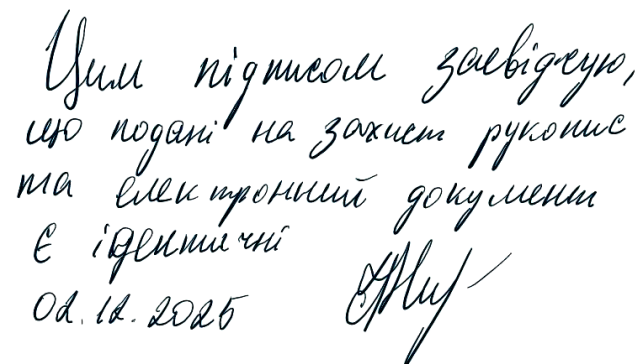 Цим підписом засвідчую,
що подані на захист рукопис
та електронний документ
є ідентичні
02.12.2025